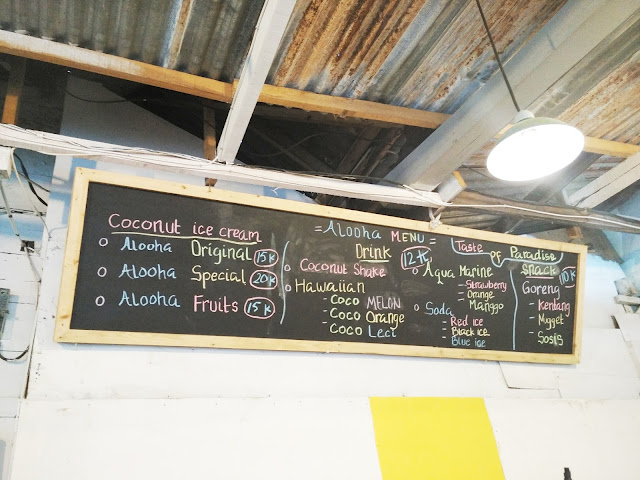 Coconut ice cream
Alooha Original 15K
Alooha Special 20K
Alooha Fruits 15K
= Alooha MENU =
Taste Of Paradise
Drink 12K
Coconut Shake
Hawaiian
- Coco MELON
- Coco Orange
- Coco Leci
Aqua Marine
- Strawberry
- Orange
- Manggo
Soda
- Red ice
- Black ice
- Blue ice
Snack 10K
Goreng
- Kentang
- Nugget
- Sosis